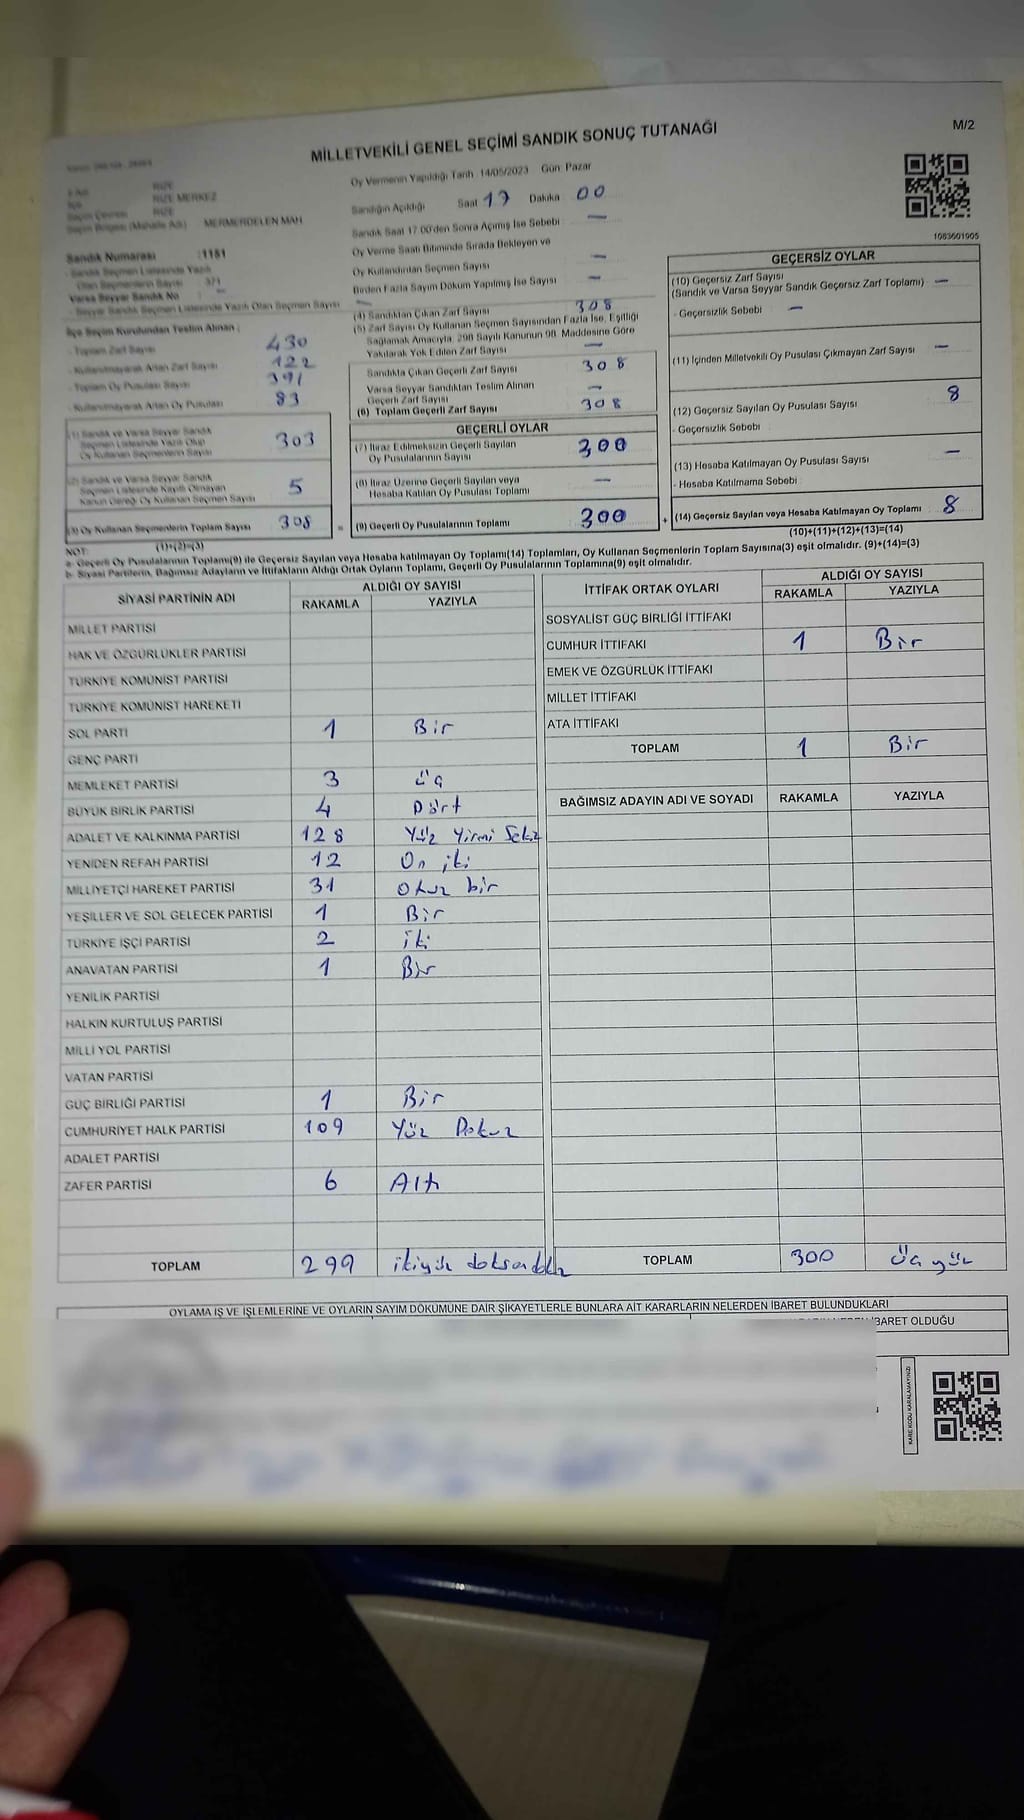 M/2
MİLLETVEKİLİ GENEL SEÇİMİ SANDIK SONUÇ TUTANAĞI
RİZE
RİZE MERKEZ
RİZE
Seçim Bölgesi (Mahalle Adı) MERMERDELEN MAH
Sandık Numarası :1151
- Sandık Seçmen Listesinde Yazılı
Olan Seçmen Sayısı : 371
Varsa Seyyar Sandık No : –
- Seyyar Sandık Seçmen Listesinde Yazılı Olan Seçmen Sayısı –
İlçe Seçim Kurulundan Teslim Alınan ;
- Toplam Zarf Sayısı 430
- Kullanılmayarak Artan Zarf Sayısı 122
- Toplam Oy Pusulası Sayısı 391
- Kullanılmayarak Artan Oy Pusulası 83
(1) Sandık ve Varsa Seyyar Sandık
Seçmen Listesinde Yazılı Olup
Oy Kullanan Seçmenlerin Sayısı 303
(2) Sandık ve Varsa Seyyar Sandık
Seçmen Listesinde Kayıtlı Olmayan
Kanun Gereği Oy Kullanan Seçmen Sayısı 5
(3) Oy Kullanan Seçmenlerin Toplam Sayısı 308 =
(1)+(2)=(3)
Oy Vermenin Yapıldığı Tarih : 14/05/2023 Gün: Pazar
Sandığın Açıldığı Saat 17 Dakika 00
Sandık Saat 17.00'den Sonra Açılmış İse Sebebi –
Oy Verme Saati Bitiminde Sırada Bekleyen ve
Oy Kullandırılan Seçmen Sayısı –
Birden Fazla Sayım Döküm Yapılmış İse Sayısı –
(4) Sandıktan Çıkan Zarf Sayısı 308
(5) Zarf Sayısı Oy Kullanan Seçmen Sayısından Fazla İse, Eşitliği
Sağlamak Amacıyla, 298 Sayılı Kanunun 98. Maddesine Göre
Yakılarak Yok Edilen Zarf Sayısı –
Sandıkta Çıkan Geçerli Zarf Sayısı 308
Varsa Seyyar Sandıktan Teslim Alınan
Geçerli Zarf Sayısı –
(6) Toplam Geçerli Zarf Sayısı 308
GEÇERLİ OYLAR
(7) İtiraz Edilmeksizin Geçerli Sayılan
Oy Pusulalarının Sayısı 300
(8) İtiraz Üzerine Geçerli Sayılan veya
Hesaba Katılan Oy Pusulası Toplamı –
(9) Geçerli Oy Pusulalarının Toplamı 300 +
1083601905
GEÇERSİZ OYLAR
(10) Geçersiz Zarf Sayısı
(Sandık ve Varsa Seyyar Sandık Geçersiz Zarf Toplamı) –
- Geçersizlik Sebebi : –
(11) İçinden Milletvekili Oy Pusulası Çıkmayan Zarf Sayısı –
(12) Geçersiz Sayılan Oy Pusulası Sayısı 8
- Geçersizlik Sebebi :
(13) Hesaba Katılmayan Oy Pusulası Sayısı –
- Hesaba Katılmama Sebebi :
(14) Geçersiz Sayılan veya Hesaba Katılmayan Oy Toplamı 8
(10)+(11)+(12)+(13)=(14)
NOT:
a- Geçerli Oy Pusulalarının Toplamı(9) ile Geçersiz Sayılan veya Hesaba katılmayan Oy Toplamı(14) Toplamları, Oy Kullanan Seçmenlerin Toplam Sayısına(3) eşit olmalıdır. (9)+(14)=(3)
b- Siyasi Partilerin, Bağımsız Adayların ve İttifakların Aldığı Ortak Oyların Toplamı, Geçerli Oy Pusulalarının Toplamına(9) eşit olmalıdır.
SİYASİ PARTİNİN ADI ALDIĞI OY SAYISI
RAKAMLA YAZIYLA
MİLLET PARTİSİ
HAK VE ÖZGÜRLÜKLER PARTİSİ
TÜRKİYE KOMÜNİST PARTİSİ
TÜRKİYE KOMÜNİST HAREKETİ
SOL PARTİ 1 Bir
GENÇ PARTİ
MEMLEKET PARTİSİ 3 üç
BÜYÜK BİRLİK PARTİSİ 4 Dört
ADALET VE KALKINMA PARTİSİ 128 Yüz Yirmi Sekiz
YENİDEN REFAH PARTİSİ 12 On iki
MİLLİYETÇİ HAREKET PARTİSİ 31 Otuz bir
YEŞİLLER VE SOL GELECEK PARTİSİ 1 Bir
TÜRKİYE İŞÇİ PARTİSİ 2 iki
ANAVATAN PARTİSİ 1 Bir
YENİLİK PARTİSİ
HALKIN KURTULUŞ PARTİSİ
MİLLİ YOL PARTİSİ
VATAN PARTİSİ
GÜÇ BİRLİĞİ PARTİSİ 1 Bir
CUMHURİYET HALK PARTİSİ 109 Yüz Dokuz
ADALET PARTİSİ
ZAFER PARTİSİ 6 Altı
TOPLAM 299 ikiyüz doksandokuz
İTTİFAK ORTAK OYLARI ALDIĞI OY SAYISI
RAKAMLA YAZIYLA
SOSYALİST GÜÇ BİRLİĞİ İTTİFAKI
CUMHUR İTTİFAKI 1 Bir
EMEK VE ÖZGÜRLÜK İTTİFAKI
MİLLET İTTİFAKI
ATA İTTİFAKI
TOPLAM 1 Bir
BAĞIMSIZ ADAYIN ADI VE SOYADI RAKAMLA YAZIYLA
TOPLAM 300 üç yüz
OYLAMA İŞ VE İŞLEMLERİNE VE OYLARIN SAYIM DÖKÜMÜNE DAİR ŞİKAYETLERLE BUNLARA AİT KARARLARIN NELERDEN İBARET BULUNDUKLARI
İBARET OLDUĞU
KARE KODU KARALAMAYINIZ!